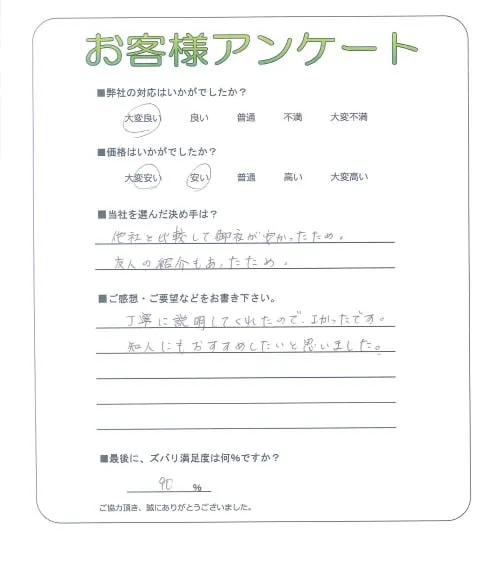 お客様アンケート
■弊社の対応はいかがでしたか？
大変良い 良い 普通 不満 大変不満
■価格はいかがでしたか？
大変安い 安い 普通 高い 大変高い
■当社を選んだ決め手は？
他社と比較して御社が安かったため。
友人の紹介もあったため。
■ご感想・ご要望などをお書き下さい。
丁寧に説明してくれたので、よかったです。
知人にもおすすめしたいと思いました。
■最後に、ズバリ満足度は何％ですか？
90 ％
ご協力頂き、誠にありがとうございました。